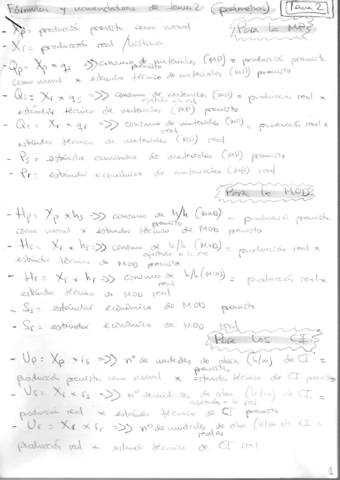 Fórmulas y nomenclaturas de tema 2 (parámetros) Tema 2
- Xp = producción prevista como normal Para la MPS
- Xr = producción real / histórica
- Qp = Xp x qs =>> consumo de materiales (MP) previsto = producción prevista
como normal x estándar técnico de materiales (MP) previsto
- Qs = Xr x qs =>> consumo de materiales (MP) ajustado a la real = producción real x
estándar técnico de materiales (MP) previsto
- Qr = Xr x qr =>> consumo de materiales (MP) real = producción real x
estándar técnico de materiales (MP) real
- Ps = estándar económico de materiales (MP) previsto
- Pr = estándar económico de materiales (MP) real
Para la MOD
- Hp = Xp x hs =>> consumo de h/h (MOD) previsto = producción prevista
como normal x estándar técnico de MOD previsto
- Hs = Xr x hs =>> consumo de h/h (MOD) ajustado a la real = producción real x
estándar técnico de MOD previsto
- Hr = Xr x hr =>> consumo de h/h (MOD) real = producción real x
estándar técnico de MOD real
- Ss = estándar económico de MOD previsto
- Sr = estándar económico de MOD real
Para los CI
- Up = Xp x is =>> nº de unidades de obra (h/m) previstas de CI =
producción prevista como normal x estándar técnico de CI previsto
- Us = Xr x is =>> nº de unidades de obra (h/m) ajustada a la real de CI =
producción real x estándar técnico de CI previsto
- Ur = Xr x ir =>> nº de unidades de obra (h/m) reales de CI =
producción real x estándar técnico de CI real
1